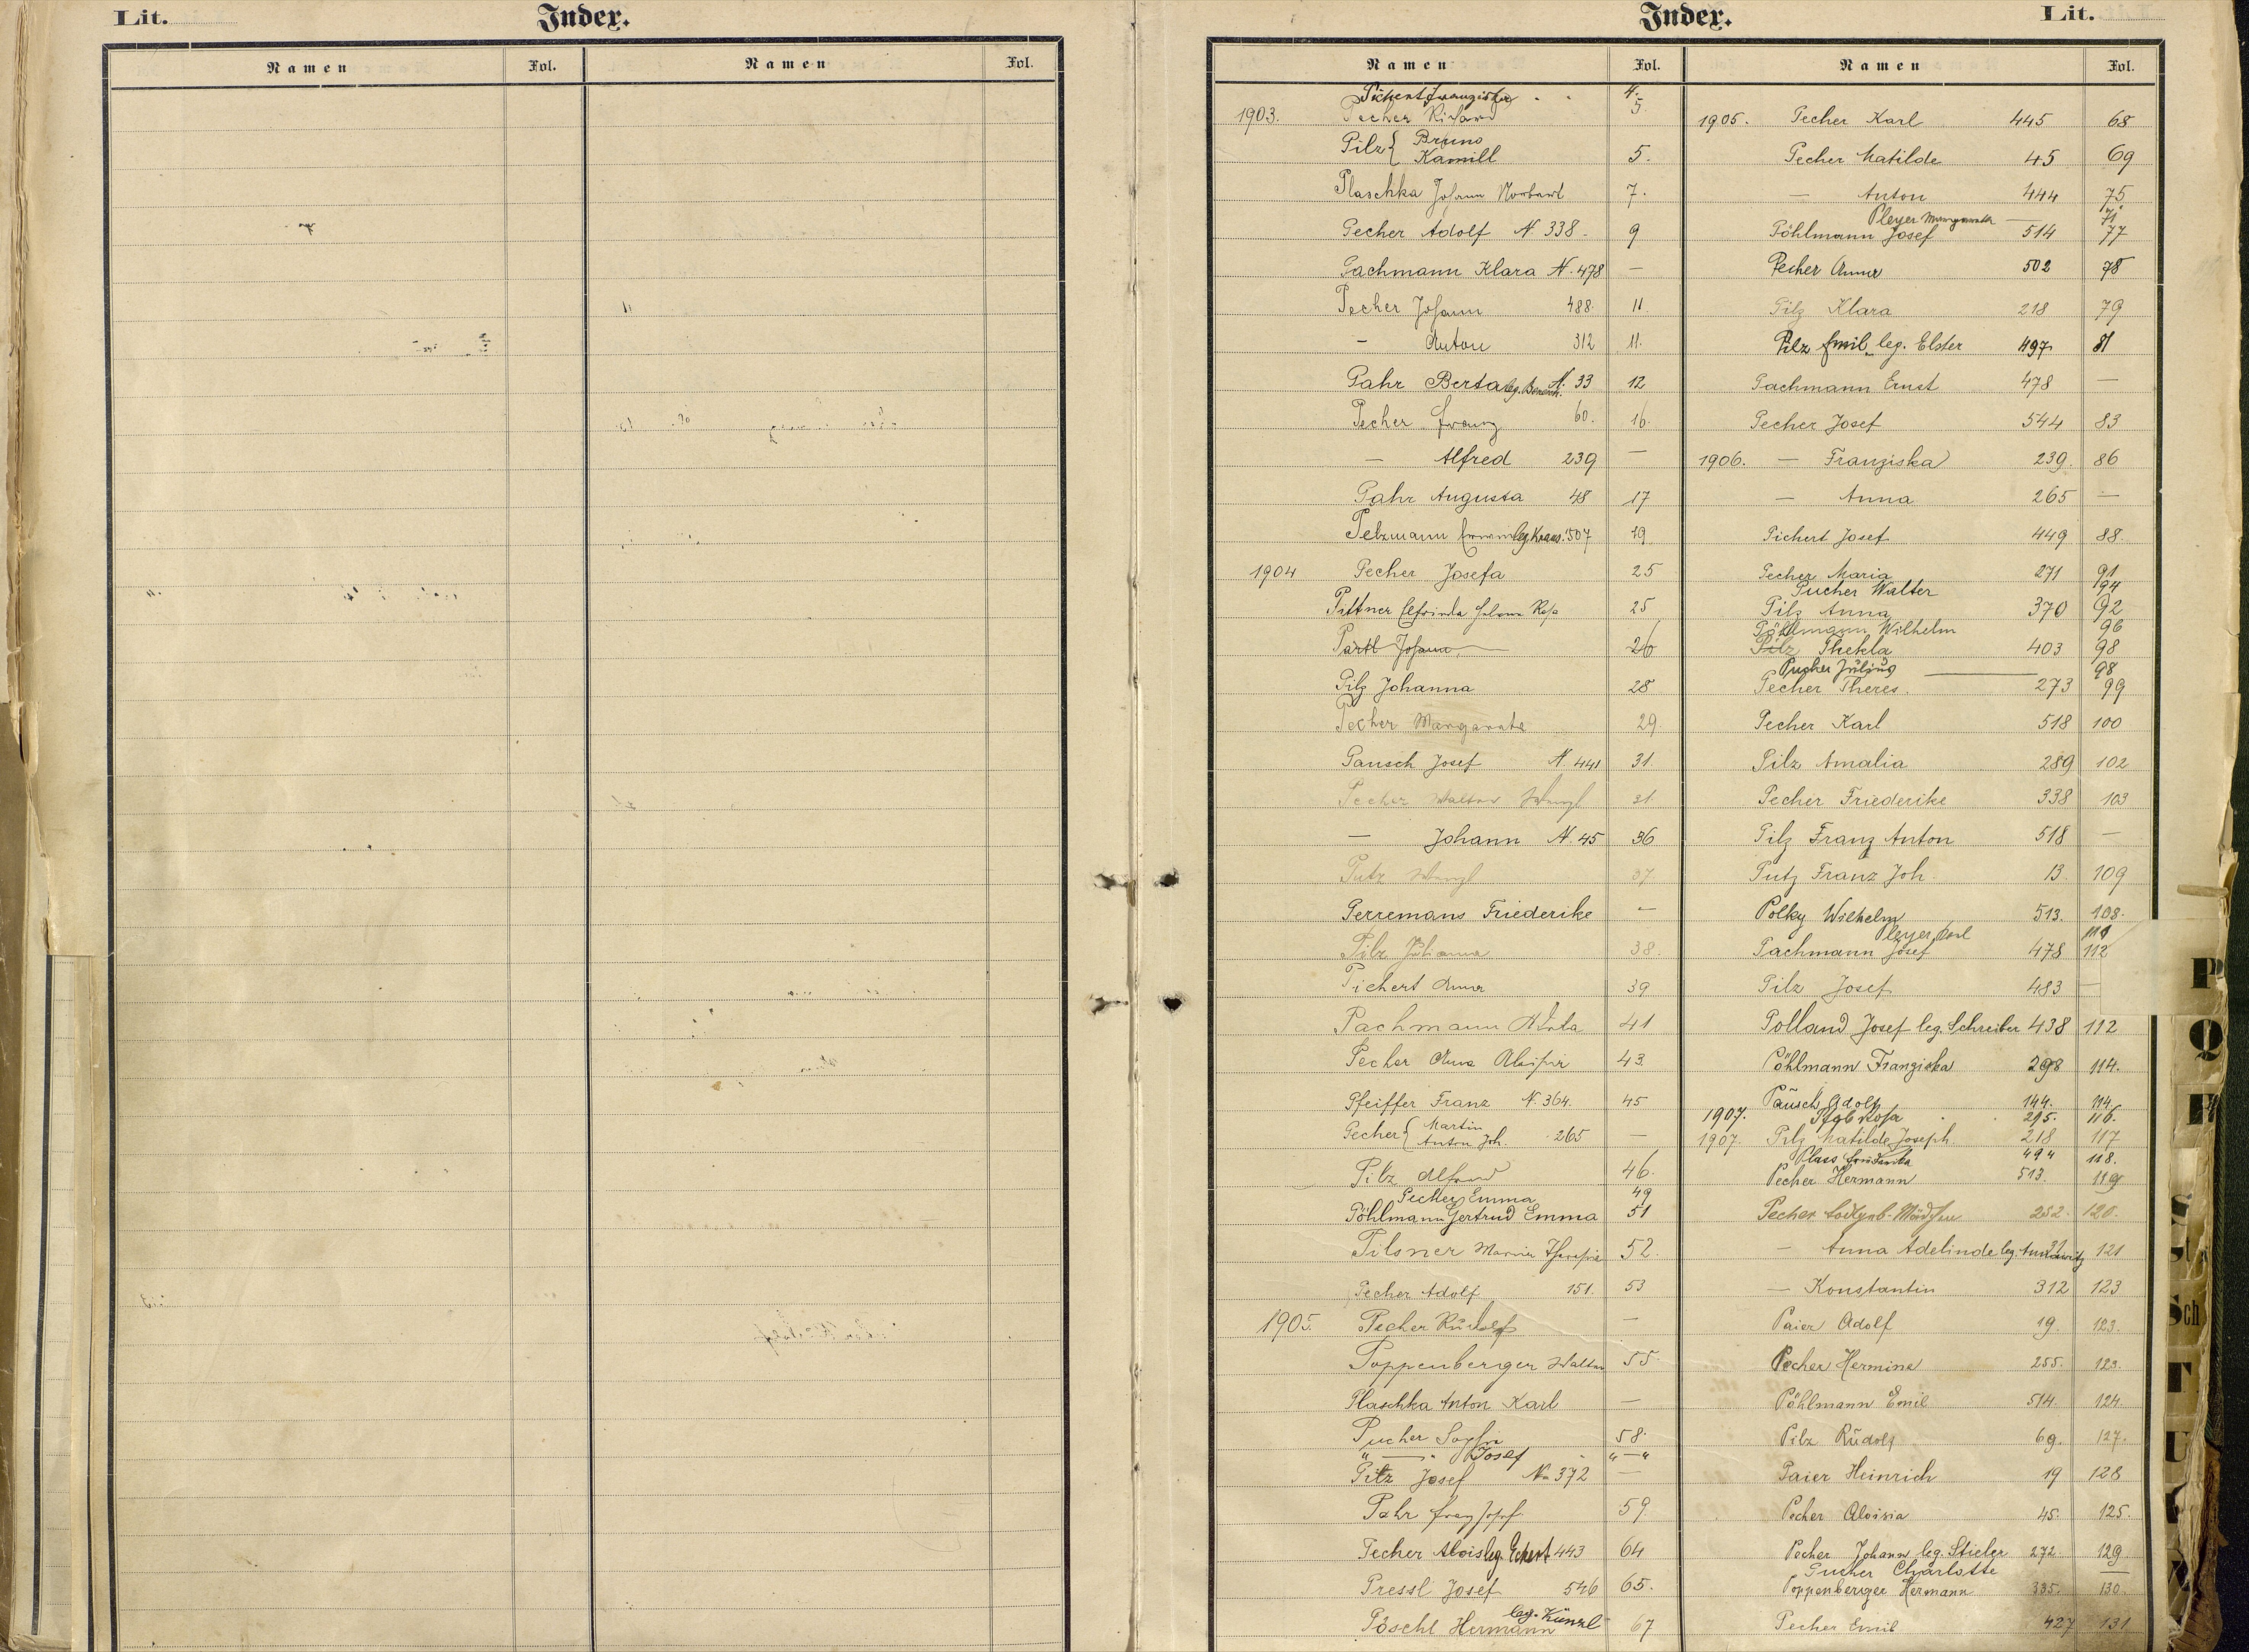 Lit.
Index.
Namen Fol. Namen Fol.
Index.
Lit.
Namen Fol.
Pichert Franziska 4.
1903. Pecher Richard 5.
Pilz { Bruno
Kamill 5.
Plaschka Johann Norbert 7.
Pecher Adolf N. 338. 9
Pachmann Klara N. 478 —
Pecher Johann 488. 11
— Anton 312 11.
Pahr Berta leg. Benesch. N. 33 12
Pecher Franz 60. 16.
— Alfred 239 —
Pahr Augusta 48 17
Pelzmann leg. Kraus. 507 19
1904 Pecher Josefa 25
Pittner Elfrinda Helena Rosa 25
Partl Johann 26
Pilz Johanna 28
Pecher Margareta 29
Pausch Josef N. 441 31.
Pecher Walter Wenzl 31.
— Johann N. 45 36
Putz Wenzl 37
Perremans Friederike —
Pilz Johanna 38.
Pichert Anna 39
Pachmann Adela 41
Pecher Anna Aloisia 43.
Pfeiffer Franz N. 364. 45
Pecher { Martin
Anton Joh. 265 —
Pilz Alfred 46.
Pecher Emma 49
Pöhlmann Gertrud Emma 51
Pilsner Maria Theresia 52.
Pecher Adolf 151. 53
1905. Pecher Rudolf —
Poppenberger Walter 55.
Plaschka Anton Karl —
Pucher Sophie 58.
" — " Josef "—"
Pilz Josef No 372 —
Pahr Franz Josef 59.
Pecher Alois leg. Eckert 443 64
Pressl Josef 546 65.
Pöschl Hermann leg. Künzl 67
Namen Fol.
1905. Pecher Karl 445 68
Pecher Matilde 45 69
— Anton 444 75
Pleyer Margareta — 71
Pöhlmann Josef 514 77
Pecher Anna 502 78
Pilz Klara 218 79
Pilz Emil leg. Elster 497 81
Pachmann Ernst 478 —
Pecher Josef 544 83
1906. — Franziska 239. 86
— Anna 265 —
Pichert Josef 449 88.
Pecher Maria 271 91
Pucher Walter 94
Pilz Anna 370 92
Pöhlmann Wilhelm 96
Pilz Thekla 403 98
Pucher Julius — 98
Pecher Theres. 273 99
Pecher Karl 518 100
Pilz Amalia 289 102
Pecher Friederike 338 103
Pilz Franz Anton 518 —
Putz Franz Joh. 13. 109
Polky Wilhelm 513. 108.
Pleyer Karl 111
Pachmann Josef 478 112
Pilz Josef 483 —
Polland Josef leg. Schreiber 438 112
Pöhlmann Franziska 298 114.
Pausch Adolf 144. 114.
1907. Rosa 295. 116.
1907. Pilz Matilde Joseph. 218 117
Plass Friederika 494 118.
Pecher Hermann 513. 119
Pecher todtgeb. Mädchen 252. 120.
— Anna Adelinde leg. 31 121
— Konstantin 312 123
Paier Adolf 19. 123.
Pecher Hermine 255. 123.
Pöhlmann Emil 514. 124.
Pilz Rudolf 69. 127.
Paier Heinrich 19 128
Pecher Aloisia 45. 125.
Pecher Johann leg. Stieler 272. 129
Pucher Charlotte —
Poppenberger Hermann 335. 130.
Pecher Emil 427 131
P
Q
R
S
St
Sch
T
U